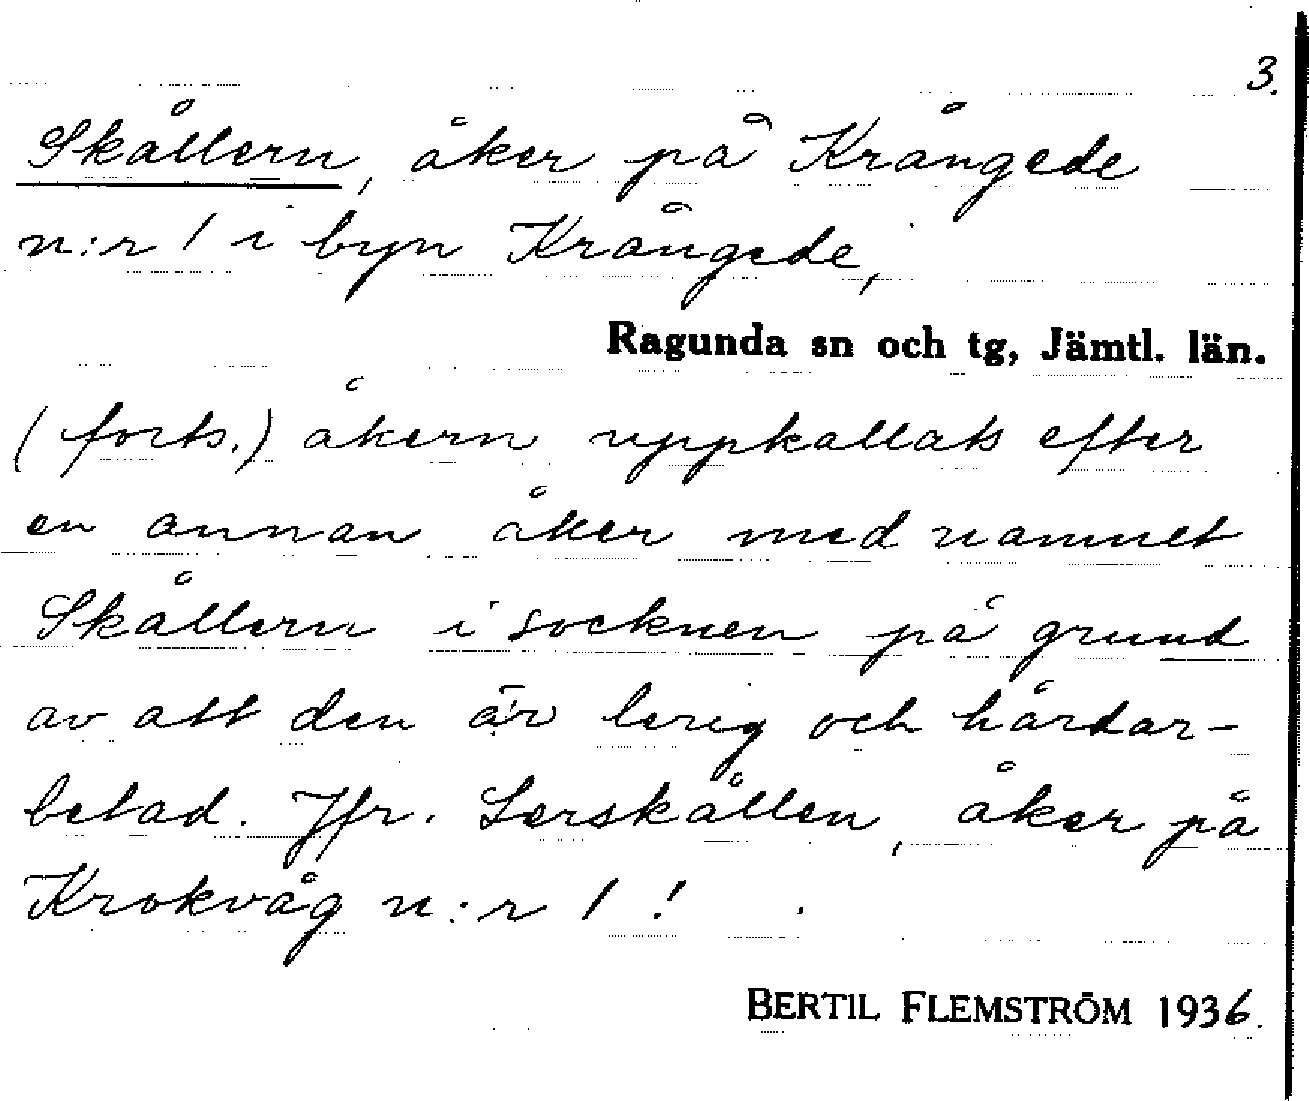 3.
Skållern, åker på Krångede
n:r 1 i byn Krångede,
Ragunda sn och tg, Jämtl. län.
(forts.) åkern uppkallats efter
en annan åker med namnet
Skållern i socknen på grund
av att den är lerig och hårdar-
betad. Jfr. Lerskållen, åker på
Krokvåg n:r 1!
BERTIL FLEMSTRÖM 1936.